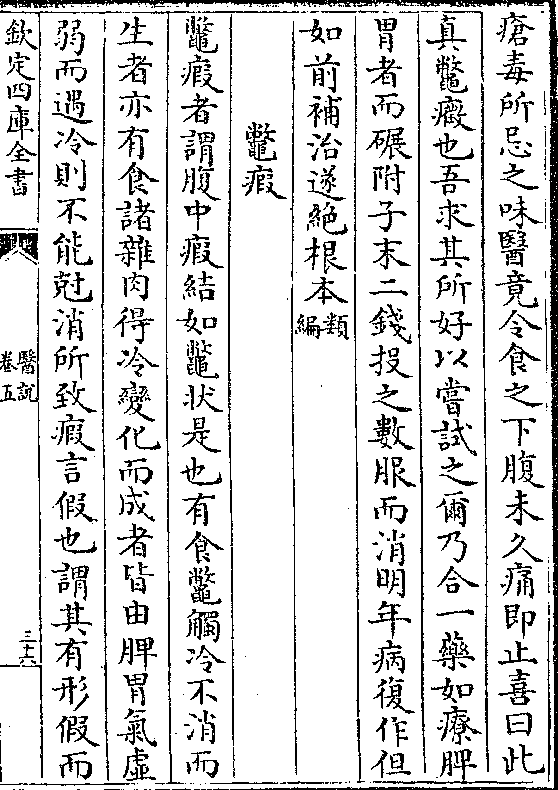 瘡毒所忌之味醫竟令食之下腹未久痛即止喜曰此
真鼈癥也吾求其所好以嘗試之爾乃合一藥如療脾
胃者而碾附子末二錢投之數服而消明年病復作但
如前補治遂絶根本類編
鼈瘕
鼈瘕者謂腹中瘕結如鼈状是也有食鼈觸冷不消而
生者亦有食諸雜肉得冷變化而成者皆由脾胃氣虛
弱而遇冷則不能尅消所致瘕言假也謂其有形假而
欽定四庫全書
醫説
卷五
三十六